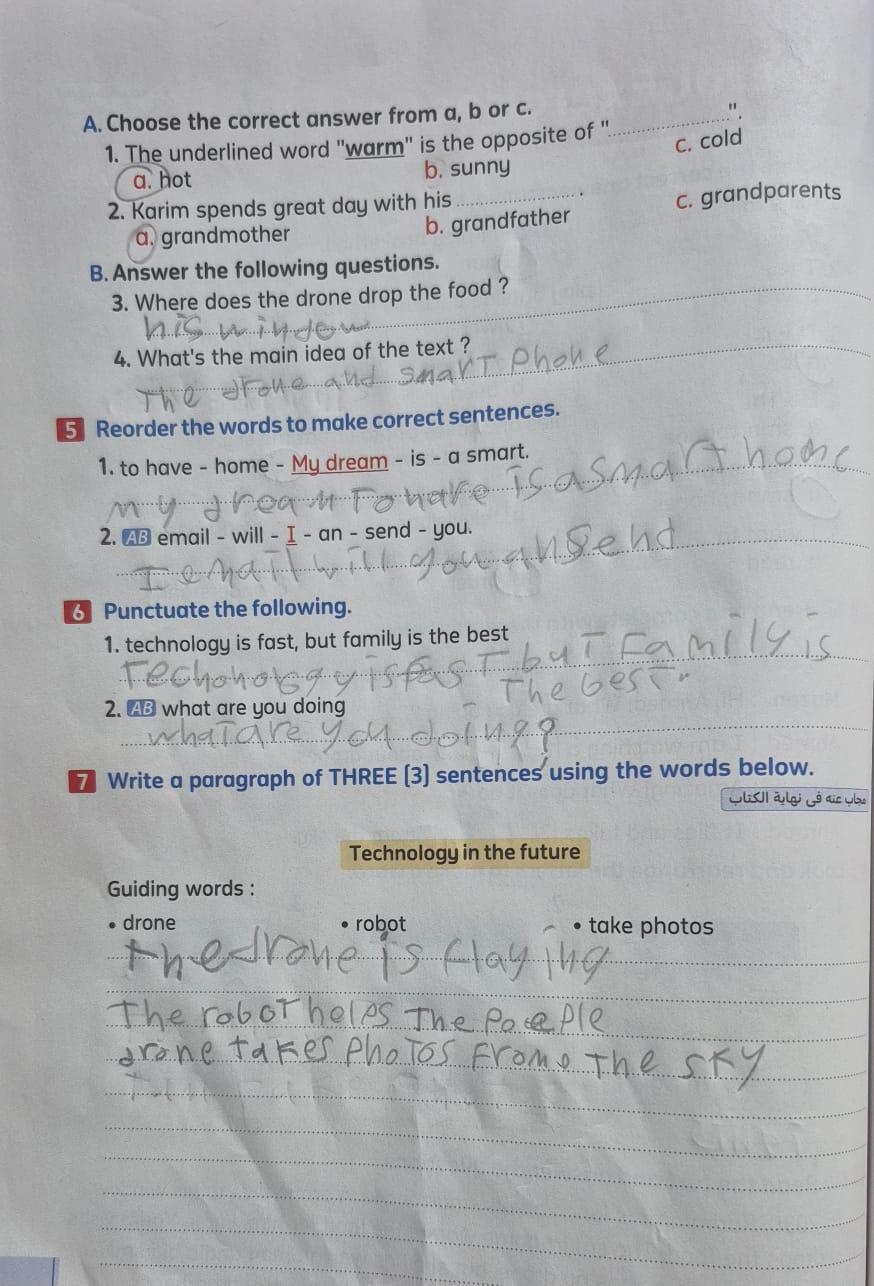 A. Choose the correct answer from a, b or c.
1. The underlined word "warm" is the opposite of "..................".
a. hot b. sunny c. cold
2. Karim spends great day with his .................. .
a. grandmother b. grandfather c. grandparents
B. Answer the following questions.
3. Where does the drone drop the food ?
his window
4. What's the main idea of the text ?
The drone and smart phone
5 Reorder the words to make correct sentences.
1. to have - home - My dream - is - a smart.
my dream To have is a smart home
2. AB email - will - I - an - send - you.
I email will you an send
6 Punctuate the following.
1. technology is fast, but family is the best
Techonology is fast but Family is
The best.
2. AB what are you doing
what are you doing?
7 Write a paragraph of THREE (3) sentences using the words below.
مجاب عنه فى نهاية الكتاب
Technology in the future
Guiding words :
• drone • robot • take photos
the drone is flaying
The robot helps The poeple
drone takes photos from The sky